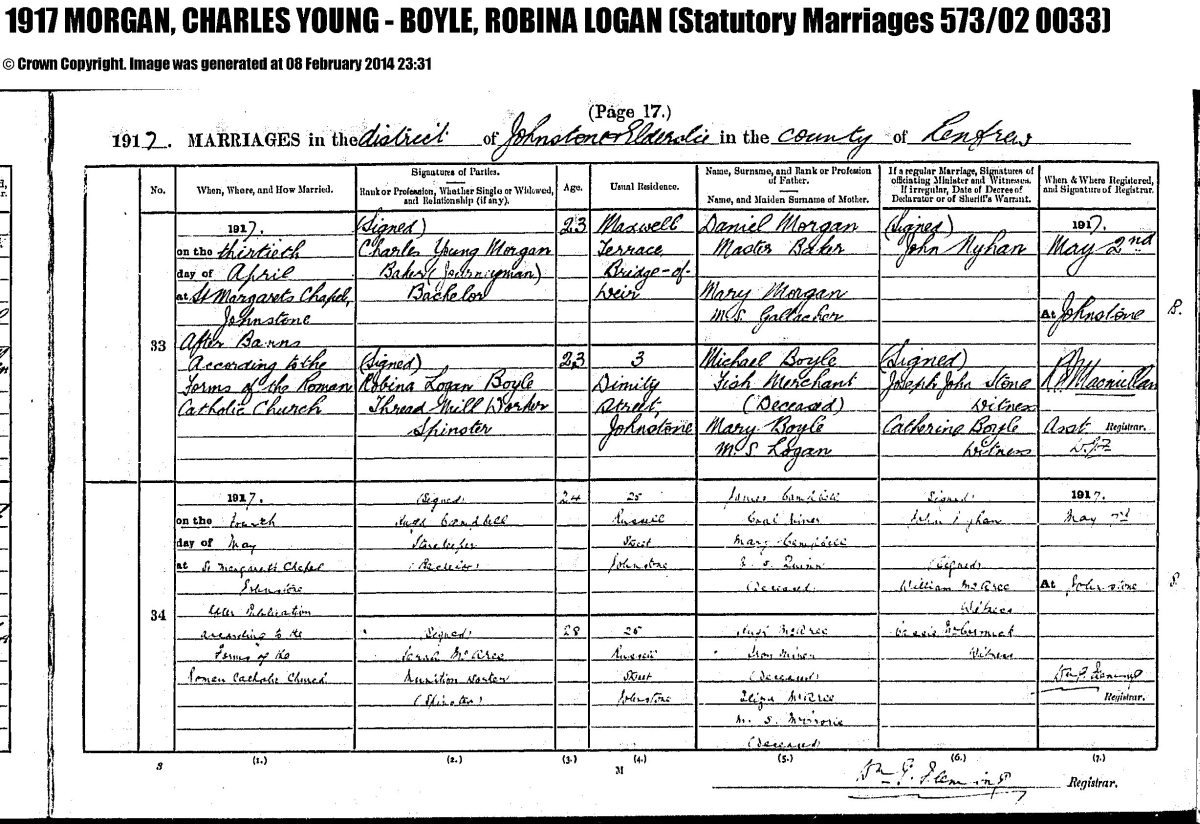 1917 MORGAN, CHARLES YOUNG - BOYLE, ROBINA LOGAN (Statutory Marriages 573/02 0033)
© Crown Copyright. Image was generated at 08 February 2014 23:31
(Page 17.)
1917. MARRIAGES in the district of Johnstone & Elderslie in the county of Renfrew
No.
When, Where, and How Married.
Signatures of Parties.
Rank or Profession, Whether Single or Widowed,
and Relationship (if any).
Age.
Usual Residence.
Name, Surname, and Rank or Profession
of Father.
Name, and Maiden Surname of Mother.
If a regular Marriage, Signatures of
officiating Minister and Witnesses.
If irregular, Date of Decree of
Declarator or of Sheriff's Warrant.
When & Where Registered,
and Signature of Registrar.
33
1917.
on the thirtieth
day of April
at St Margarets Chapel,
Johnstone
After Banns
According to the
Forms of the Roman
Catholic Church
(Signed)
Charles Young Morgan
Baker (Journeyman)
Bachelor
(Signed)
Robina Logan Boyle
Thread Mill Worker
Spinster
23
23
Maxwell
Terrace,
Bridge-of-
Weir
3
Dimity
Street,
Johnstone
Daniel Morgan
Master Baker
Mary Morgan
M.S. Gallacher
Michael Boyle
Fish Merchant
(Deceased)
Mary Boyle
M.S. Logan
(Signed)
John Nyhan
(Signed)
Joseph John Stone
Witness
Catherine Boyle
Witness
1917.
May 2nd
At Johnstone
Macmillan
Asst Registrar.
34
1917.
on the Fourth
day of May
at St Margaret's Chapel
Johnstone
After Publication
According to the
Forms of the
Roman Catholic Church
(Signed)
Hugh Campbell
Storekeeper
(Bachelor)
(Signed)
Sarah McAree
Munition Worker
(Spinster)
24
28
25
Russell
Street
Johnstone
25
Russell
Street
Johnstone
James Campbell
Coal Miner
Mary Campbell
Quinn
(Deceased)
Hugh McAree
Iron Miner
(Deceased)
Eliza McAree
M. S.
(Deceased)
(Signed)
John Nyhan
(Signed)
William McAree
Witness
Cassie McCormick
Witness
1917.
May
At Johnstone
Wm G. Fleming
Registrar.
S
(1.)
(2.)
(3.)
(4.)
(5.)
(6.)
(7.)
M
Wm G. Fleming Registrar.